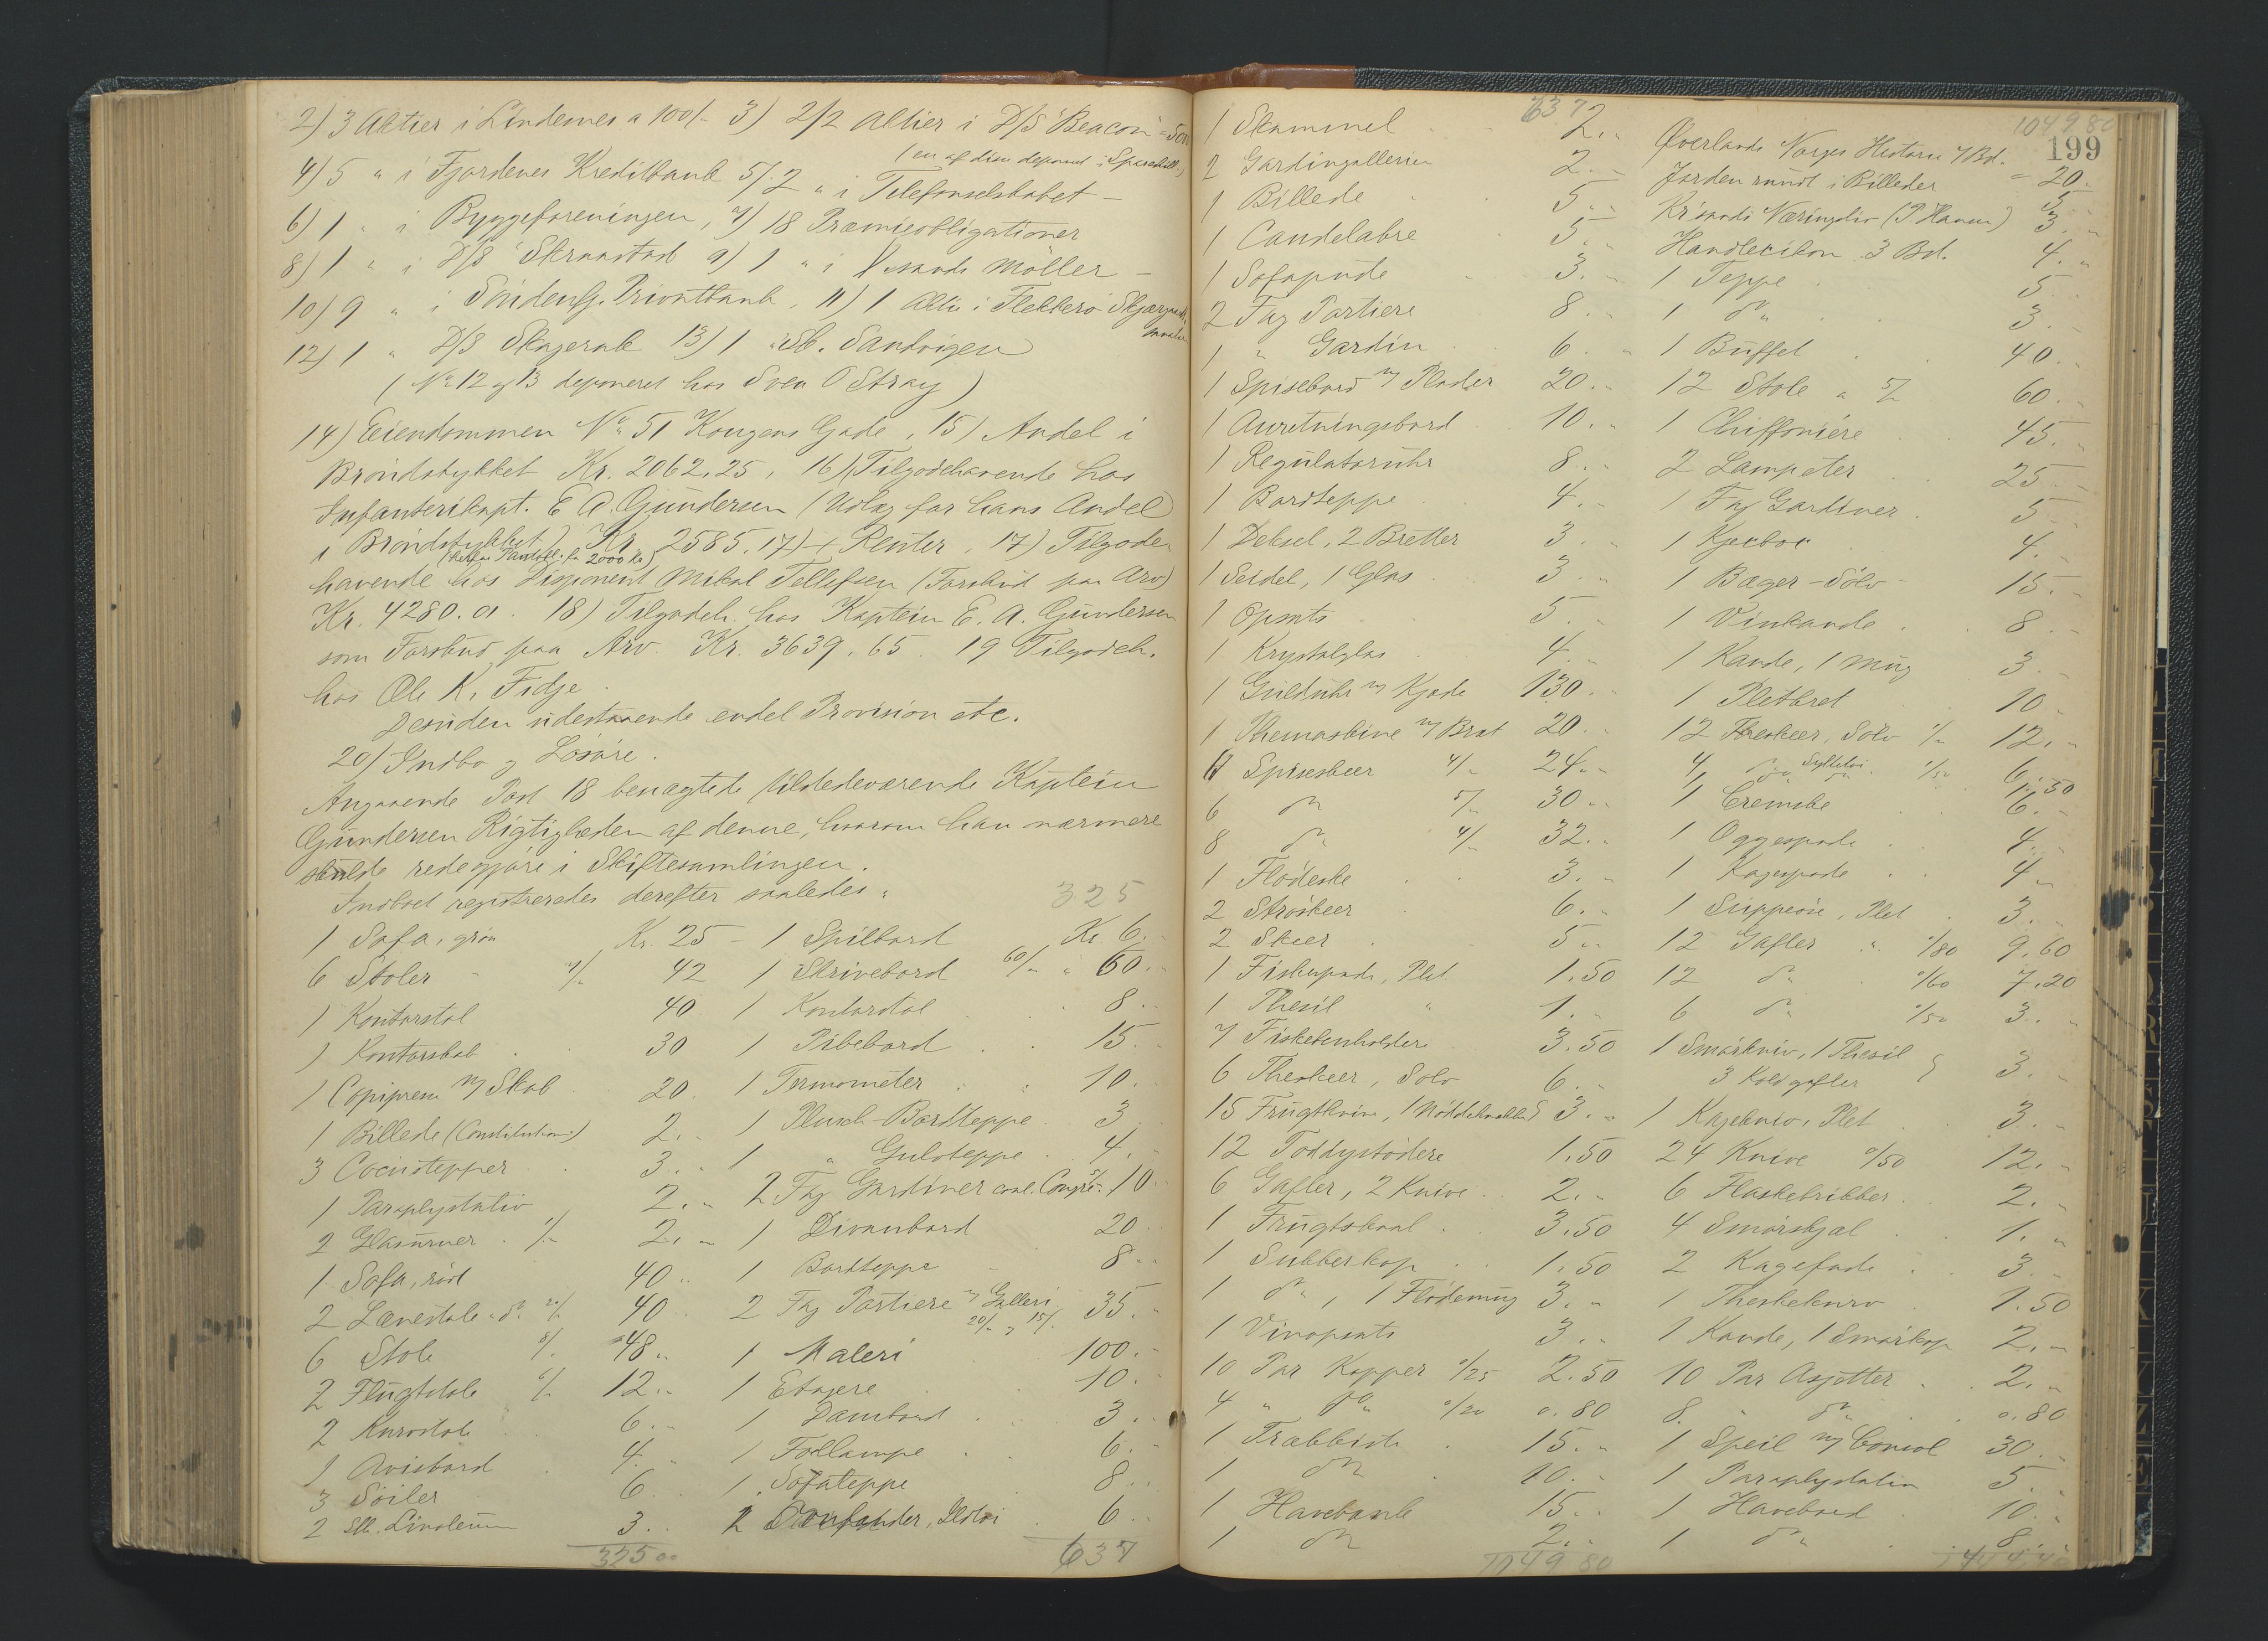 2) 3 Aktier i Lindesnes a 100/- 3) 2/2 Aktier i D/S "Beacon" = 500
(en af disse deponeret i Sparebk.)
4) 5 " i Fjordenes Kreditbank 5) 2 " i Telefonselskabet -
6) 1 " i Byggeforeningen, 7) 18 Præmieobligationer
8) 1 " i D/S Skraastad 9) 1 " i Møller -
10) 9 " i Søndenfj. Privatbank, 11) 1 Aktie i Flekkerø Skjærgaards
12) 1 " D/S Skagerak 13) 1 " Sb. Sandvigen
(No 12 og 13 deponeret hos Sven O Stray)
14) Eiendommen No 51 Kongens Gade, 15) Andel i
Brøndstykket Kr. 2062.25, 16) (Tilgodehavende hos
Infanterikapt. E A. Gundersen (Udlæg for hans Andel
i Brøndstykket) Kr. 2585.17) + Renter, 17) Tilgode-
2000 Kr)
havende hos Disponent Mikal Tellefsen (Forskud paa Arv)
Kr. 4280.01. 18) Tilgodeh. hos Kaptein E. A. Gundersen
som Forskud paa Arv. Kr. 3639.65. 19 Tilgodeh.
hos Ole K. Fidje.
Desuden udestaaende endel Provision etc.
20) Indbo og Løsøre.
Angaaende Post 18 benægtede tilstedeværende Kaptein
Gundersen Rigtigheden af denne, hvorom han nærmere
skulde redegjøre i Skiftesamlingen.
Indboet registreredes derefter saaledes:
325
1 Sofa, grøn Kr. 25 - 1 Spilbord Kr 6. -
6 Stoler 7/- 42 1 Skrivebord 60/- " 60. -
1 Kontorstol 40 1 Kontorstol 8. -
1 Kontorskab 30 1 Pibebord 15. -
1 Copipresse m/ Skab 20. 1 Termometer 10. -
1 Billede (Constitution) 2. - 1 Plusch-Bordteppe 3.
3 Cocustepper 3. - 1 " Gulvteppe 4. -
1 Paraplystativ 2. - 2 Fag Gardiner 5/- 10 -
2 Glasurner 1/- 2. - 1 Divanbord 20
1 Sofa, rød 40 - 1 Bordteppe 8 -
2 Lænestole " do 20/- 40 2 Fag Portiere m/ Galleri 20/- og 15/- 35. -
6 Stole 8/- 48 - 1 Maleri 100. -
2 Flugtstole 6/- 12. - 1 Etagere 10. -
2 Kurvstole 6. - 1 Dambord 3. -
1 Avisbord 4. - 1 Fodlampe 6. -
3 Søiler 6 1 Sofateppe 8 -
2 Stk. Linoleum 3. - 6 -
325 00 637
637 104980
199
1 Skammel 2. - Øverlands Norges Historie 7 Bd. = 20. -
2 Gardingallerier 2. - Jorden rundt i Billeder 5. -
1 Billede 5. - Kr'sands Næringsliv 3. -
1 Candelabre 5. - Handlexikon 3 Bd. 4. -
1 Sofapude 3. - 1 Teppe 5. -
2 Fag Portiere 8. - 1 do 3. -
1 " Gardin 6. - 1 Buffet 40. -
1 Spisebord m/ Plader 20. - 12 Stole a 5/- 60. -
1 Anretningsbord 10. - 1 Chiffoniere 45. -
1 Regulatoruhr 8. - 2 Lampeter 25 -
1 Bordteppe 4. - 1 Fag Gardiner 5 -
1 Deksel, 2 Bretter 3. - 1 4. -
1 Seidel, 1 Glas 3 - 1 Bæger - Sølv - 15. -
1 Opsats 5. - 1 Vinkande 8 -
1 Krystalglas 4. - 1 Kande, 1 Mug 3. -
1 Gulduhr m/ Kjæde 130. - 1 Pletbret 10 -
1 Themaskine m/ Bret 20. - 12 Theskeer, Sølv 1/- 12. -
6 Spiseskeer 4/- 24. - 4 do Syltetøi 1/50 6. -
6 do 5/- 30 - 1 Cremske 6. -
8 do 4/- 32. - 1 Æggespade 4. -
1 Flødeske 3. - 1 Kagespade 4 -
2 Strøskeer 6. - 1 Suppeøse, Plet 3. -
2 Skeer 5 - 12 Gafler " 0/80 9.60
1 Fiskespade, Plet 1.50 12 do 0/60 7.20
1 Thesil " 1. - 6 do 0/50 3. -
7 3.50 1 Smørkniv, 1 Thesil
6 Theskeer, Sølv 6. - 3 Koldgafler 3. -
15 Frugtknive, 1 Nøddeknækker 3. - 1 Kagekniv, Plet 3. -
12 Toddystødere 1.50 24 Knive 0/50 12. -
6 Gafler, 2 Knive 2. - 6 Flaskebrikker 2. -
1 Frugtskaal 3.50 4 Smørskjal 1. -
1 Sukkerkop 1.50 2 Kagefade 3. -
1 do, 1 Flødemug 3. - 1 Theskekurv 1.50
1 Vinopsats 3. - 1 Kande, 1 Smørkop 2. -
10 Par Kopper 0/25 2.50 10 Par Asjetter 2. -
4 " do 0/20 0.80 8 " do 0.80
1 15. - 1 Speil m/ Consol 30. -
1 do 10. - 1 Paraplystativ 5. -
1 Havebænk 15. - 1 Havebord 10. -
1 do 2. - 1 do 8. -
1049 80